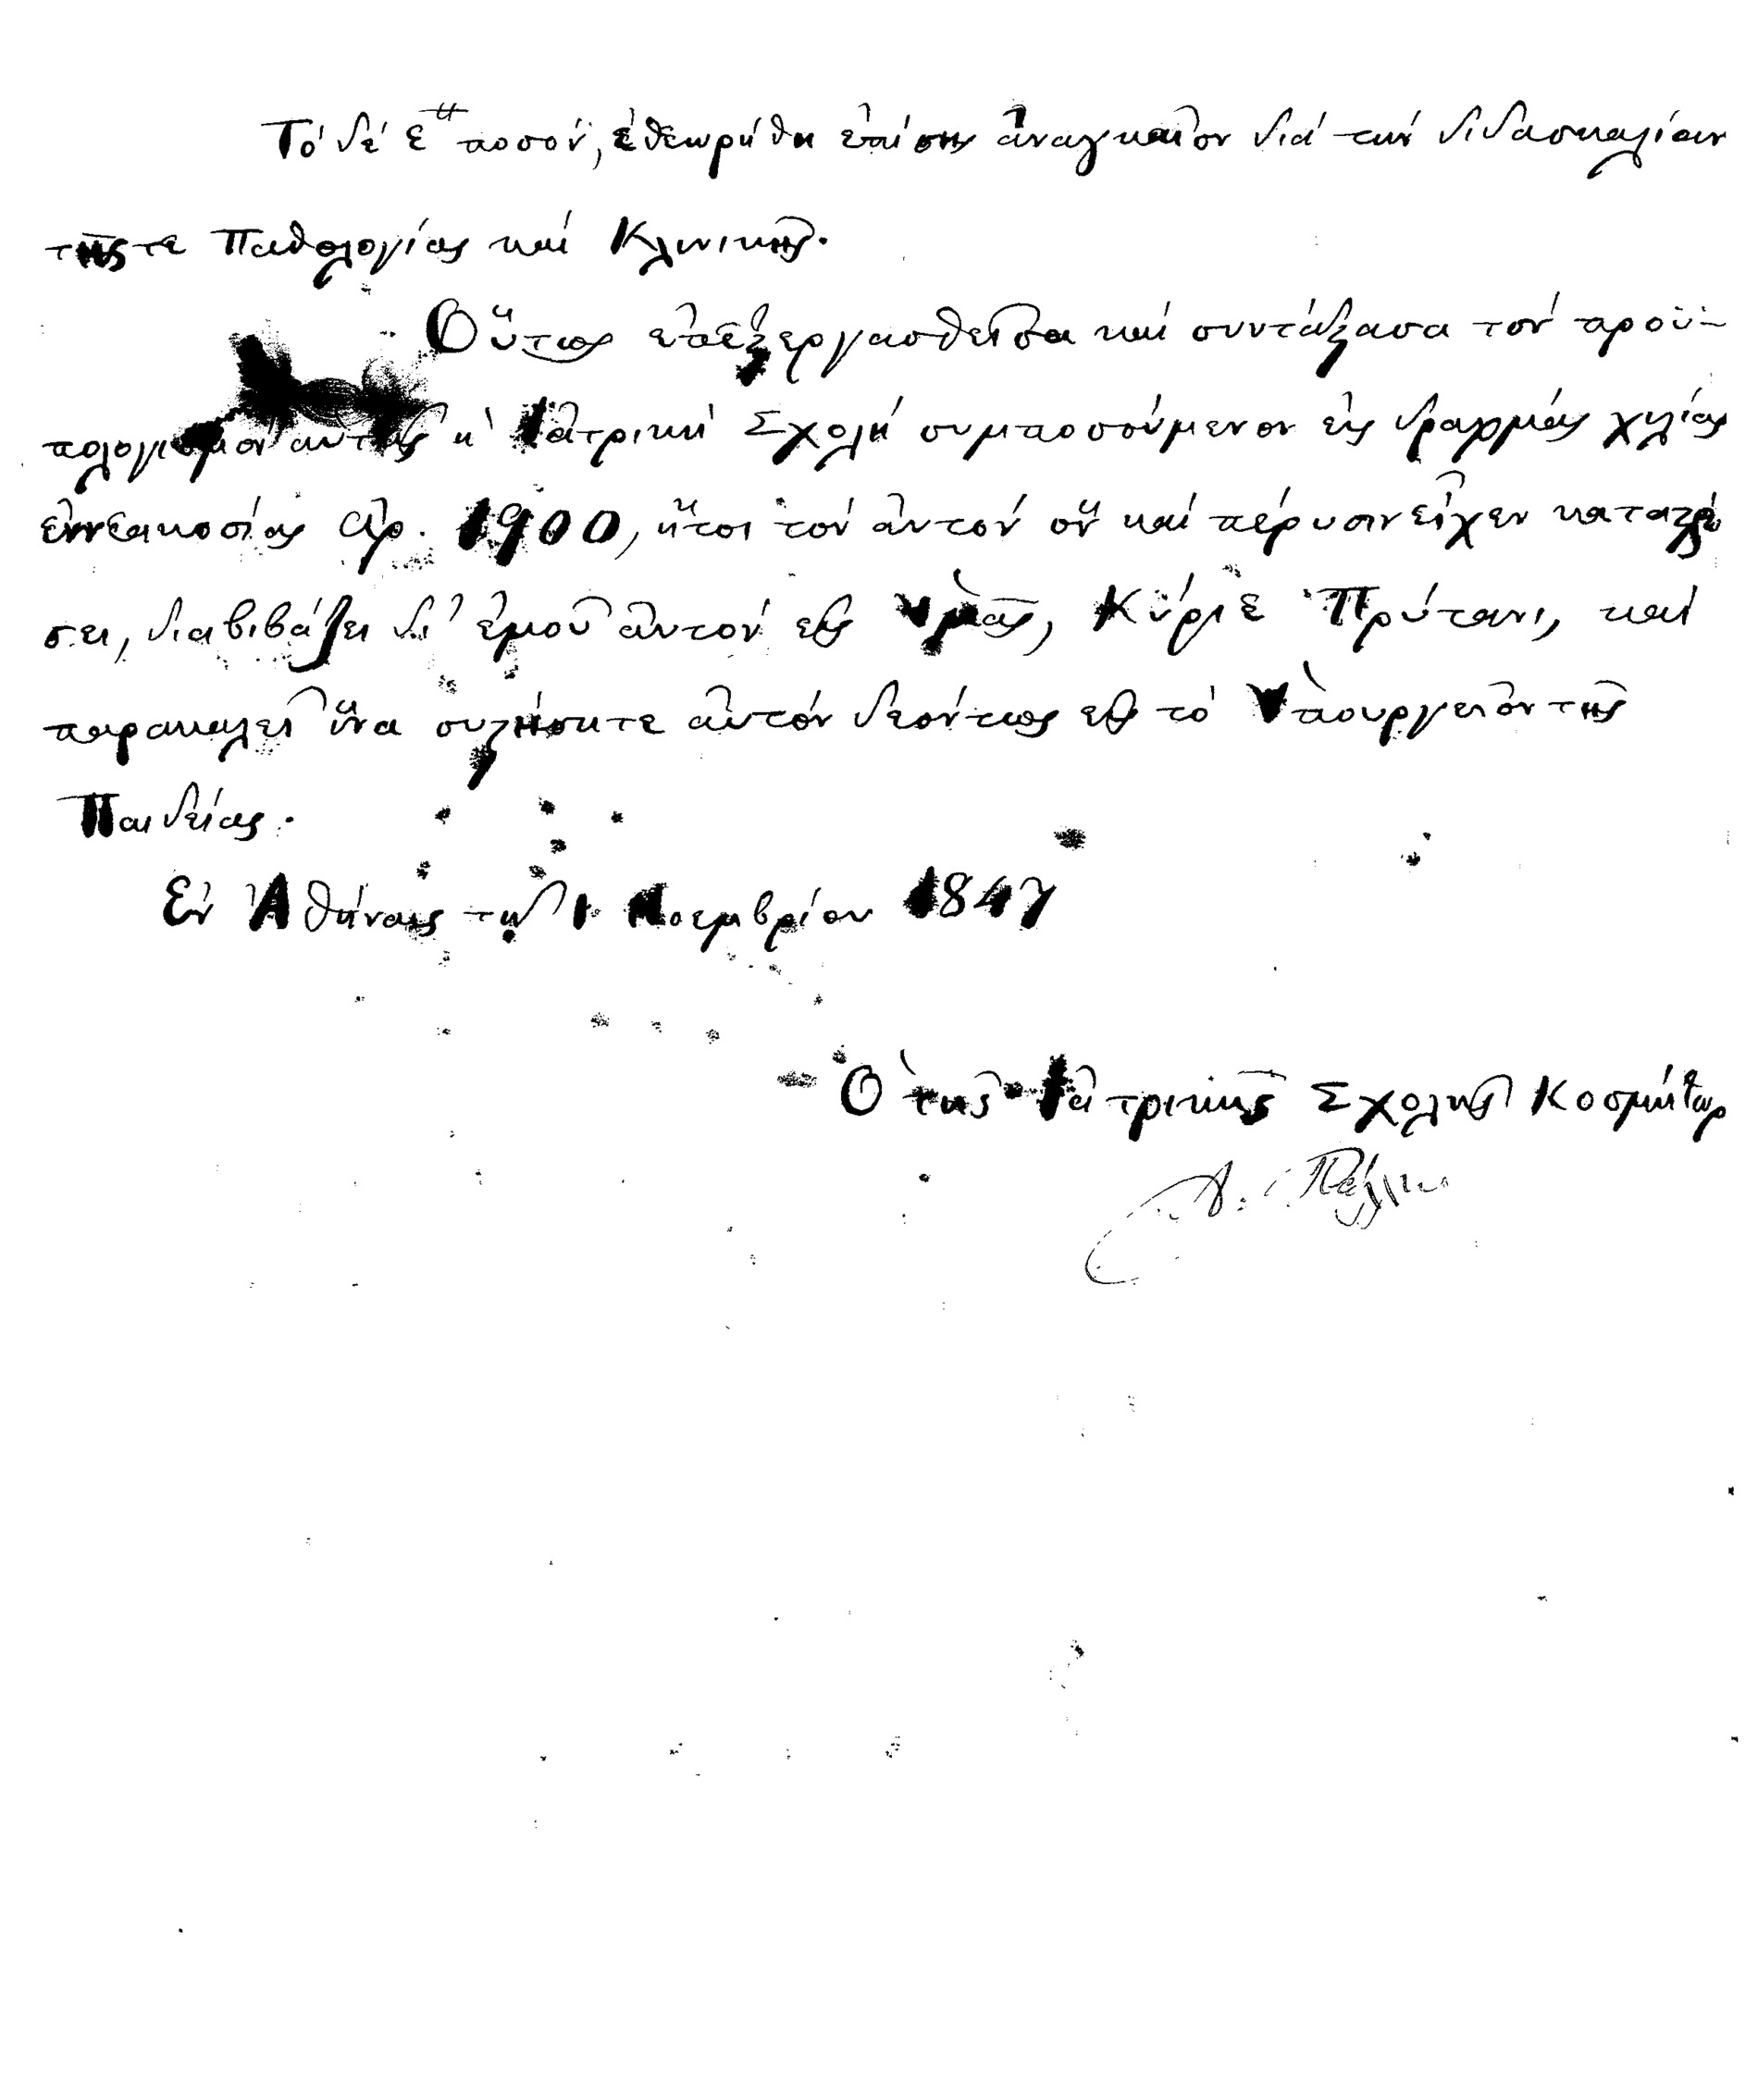 Τὸ δὲ ε^ον ποσόν, ἐθεωρήθη ἐπίσης ἀναγκαῖον διά τήν διδασκαλίαν
τῆς τε Παθολογίας καί Κλινικῆς.
Οὕτως ἐπεξεργασθεῖσα καί συντάξασα τόν προϋ-
πολογισμόν αὐτῆς ἡ Ἰατρική Σχολή συμποσούμενον εἰς δραχμάς χιλίας
ἐννεακοσίας Δρ. 1900, ἤτοι τόν αὐτόν ὅν καί πέρυσιν εἶχεν καταχρεώ
σει, διαβιβάζει δι' ἐμοῦ αὐτόν εἰς ὑμᾶς, Κύριε Πρύτανι, καί
παρακαλεῖ ἵνα συζήσητε αὐτόν δεόντως εἰς τό Ὑπουργεῖον τῆς
Παιδείας.
Ἐν Ἀθήναις τῇ 1 Νοεμβρίου 1847
Ὁ τῆς Ἰατρικῆς Σχολῆς Κοσμήτωρ